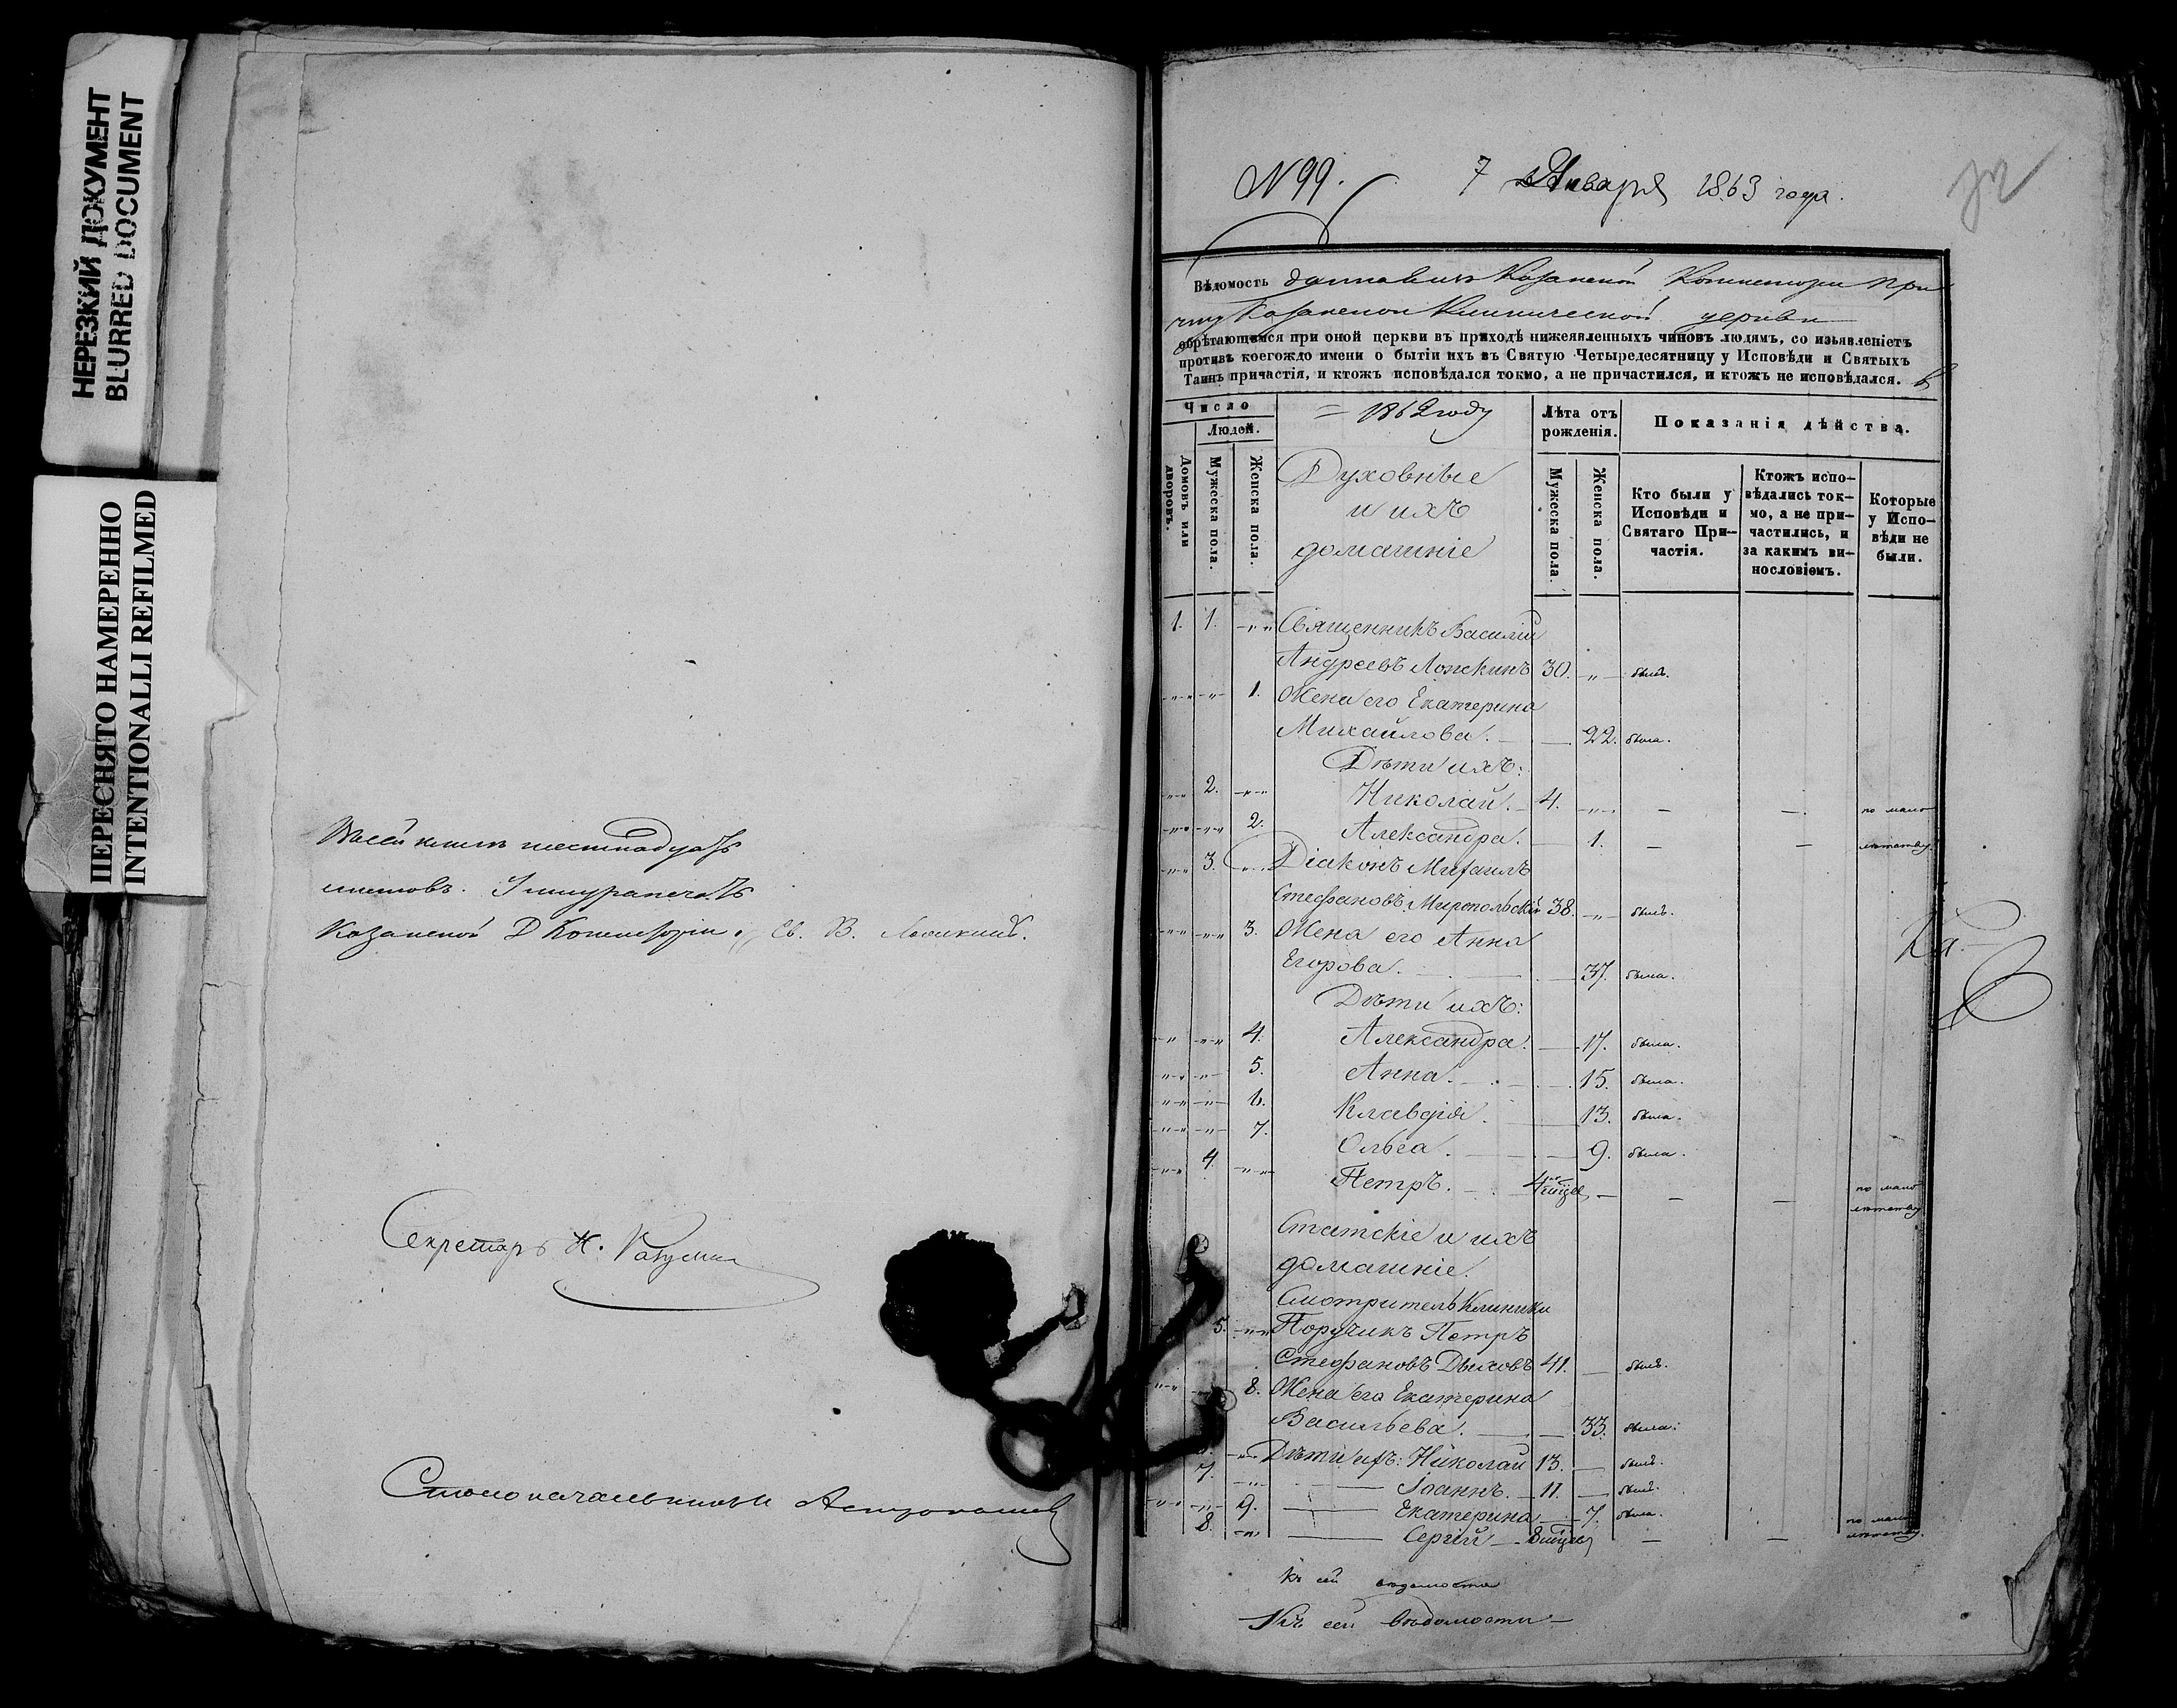 НЕРЕЗКИЙ ДОКУМЕНТ
BLURRED DOCUMENT
ПЕРЕСНЯТО НАМЕРЕННО
INTENTIONALLI REFILMED
листовъ.
Казанской Д Консисторіи. Св. В. Ложкинъ.
Секретарь Н.
Столоначальникъ
N 99. 7 Января 1863 года.
Вѣдомость Казанской Консисторіи при
Казанской Клинической церкви
обрѣтающимся при оной церкви въ приходѣ нижеявленныхъ чиновъ людямъ, со изъявленіетъ
противъ коегождо имени о бытіи ихъ въ Святую Четыредесятницу у Исповѣди и Святыхъ
Таинъ причастія, и ктожъ исповѣдался токмо, а не причастился, и ктожъ не исповѣдался. въ
Число
Людей.
Домовъ или дворовъ.
Мужеска пола.
Женска пола.
1862 году
Духовные
и ихъ
домашніе
Лѣта отъ
рожденія.
Мужеска пола.
Женска пола.
Показанія дѣйства.
Кто были у
Исповѣди и
Святаго При-
частія.
Ктожъ испо-
вѣдались ток-
мо, а не при-
частились, и
за какимъ ви-
нословіемъ.
Которые
у Испо-
вѣди не
были.
1. 1. Священникъ Василій
Андреевъ Ложкинъ 30. былъ.
1. Жена его Екатерина
Михайлова. 22. была.
Дѣти ихъ:
2. Николай. 4. по мало
2. Александра. 1. лѣтству.
3. Діаконъ Михаилъ
Стефановъ Миропольскій 38. былъ.
3. Жена его Анна
Егорова. 37. была.
Дѣти ихъ:
4. Александра. 17. была.
5. Анна. 15. была.
6. Клавдія. 13. была.
7. Ольга. 9. была.
4. Петръ. 4 по мало
лѣтству
Статскіе и ихъ
домашніе.
Смотритель Клиники
5. Поручикъ Петръ
Стефановъ Дьховъ 41. былъ.
8. Жена его Екатерина
Васильева. 33. была.
Дѣти ихъ: Николай 13. былъ.
7. Іоаннъ. 11. былъ.
9. Екатерина 7. была.
8. Сергій 8 по мало
лѣтству.
Къ сей вѣдомости
Къ сей вѣдомости